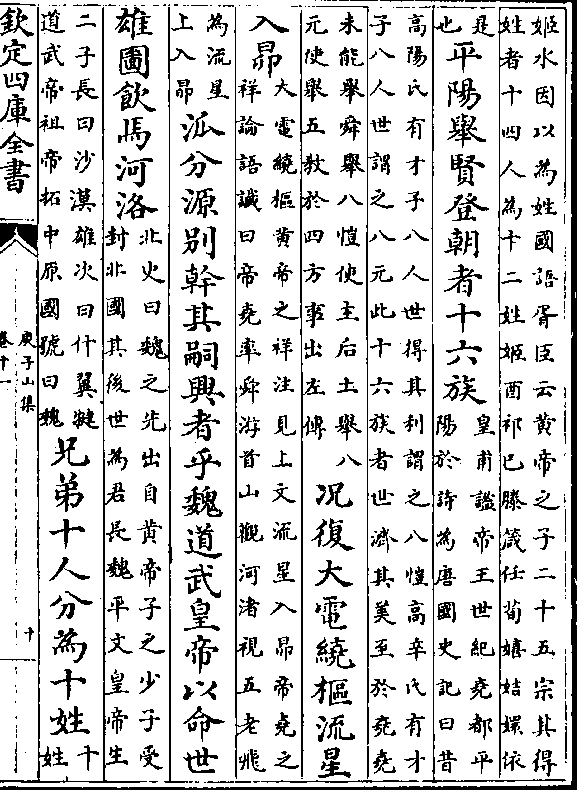 姬水因以為姓國語胥臣云黃帝之子二十五宗其得
姓者十四人為十二姓姬酉祁已滕箴任荀嬉姞嬛依
是
也
平陽舉賢登朝者十六族
皇甫謐帝王世紀堯都平
陽於詩為唐國史記曰昔
高陽氏有才子八人世得其利謂之八愷高辛氏有才
子八人世謂之八元此十六族者世濟其美至於堯堯
未能舉舜舉八愷使主后土舉八
元使舉五教於四方事出左傳
况復大電繞樞流星
入昴
大電繞樞黃帝之祥注見上文流星入昴帝堯之
祥論語讖曰帝堯率舜游首山觀河渚視五老飛
為流星
上入昴
派分源别幹其嗣興者乎魏道武皇帝以命世
雄圖飲馬河洛
北史曰魏之先出自黃帝子之少子受
封北國其後世為君長魏平文皇帝生
二子長曰沙漠雄次曰什翼犍
道武帝祖帝拓中原國號曰魏
兄弟十人分為十姓
十
姓
欽定四庫全書
庾子山集
卷十一
十